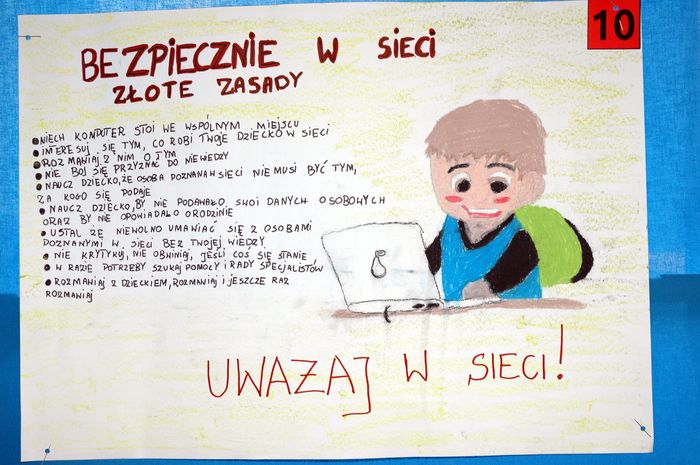 10
BEZPIECZNIE W SIECI
ZŁOTE ZASADY
• NIECH KOMPUTER STOI WE WSPÓLNYM MIEJSCU
• INTERESUJ SIĘ TYM, CO ROBI TWOJE DZIECKO W SIECI
• ROZMAWIAJ Z NIM O TYM
• NIE BÓJ SIĘ PRZYZNAĆ DO NIEWIEDZY
• NAUCZ DZIECKO, ŻE OSOBA POZNANA W SIECI NIE MUSI BYĆ TYM,
ZA KOGO SIĘ PODAJE
• NAUCZ DZIECKO, BY NIE PODAWAŁO SWOI DANYCH OSOBOWYCH
ORAZ BY NIE OPOWIADAŁO O RODZINIE
• USTAL ŻE NIEWOLNO UMAWIAĆ SIĘ Z OSOBAMI
POZNANYMI W SIECI BEZ TWOJEJ WIEDZY
• NIE KRYTYKUJ, NIE OBWINIAJ, JEŚLI COŚ SIĘ STANIE
• W RAZIE POTRZEBY SZUKAJ POMOCY I RADY SPECJALISTÓW
• ROZMAWIAJ Z DZIECKIEM, ROZMAWIAJ I JESZCZE RAZ
ROZMAWIAJ
UWAŻAJ W SIECI!